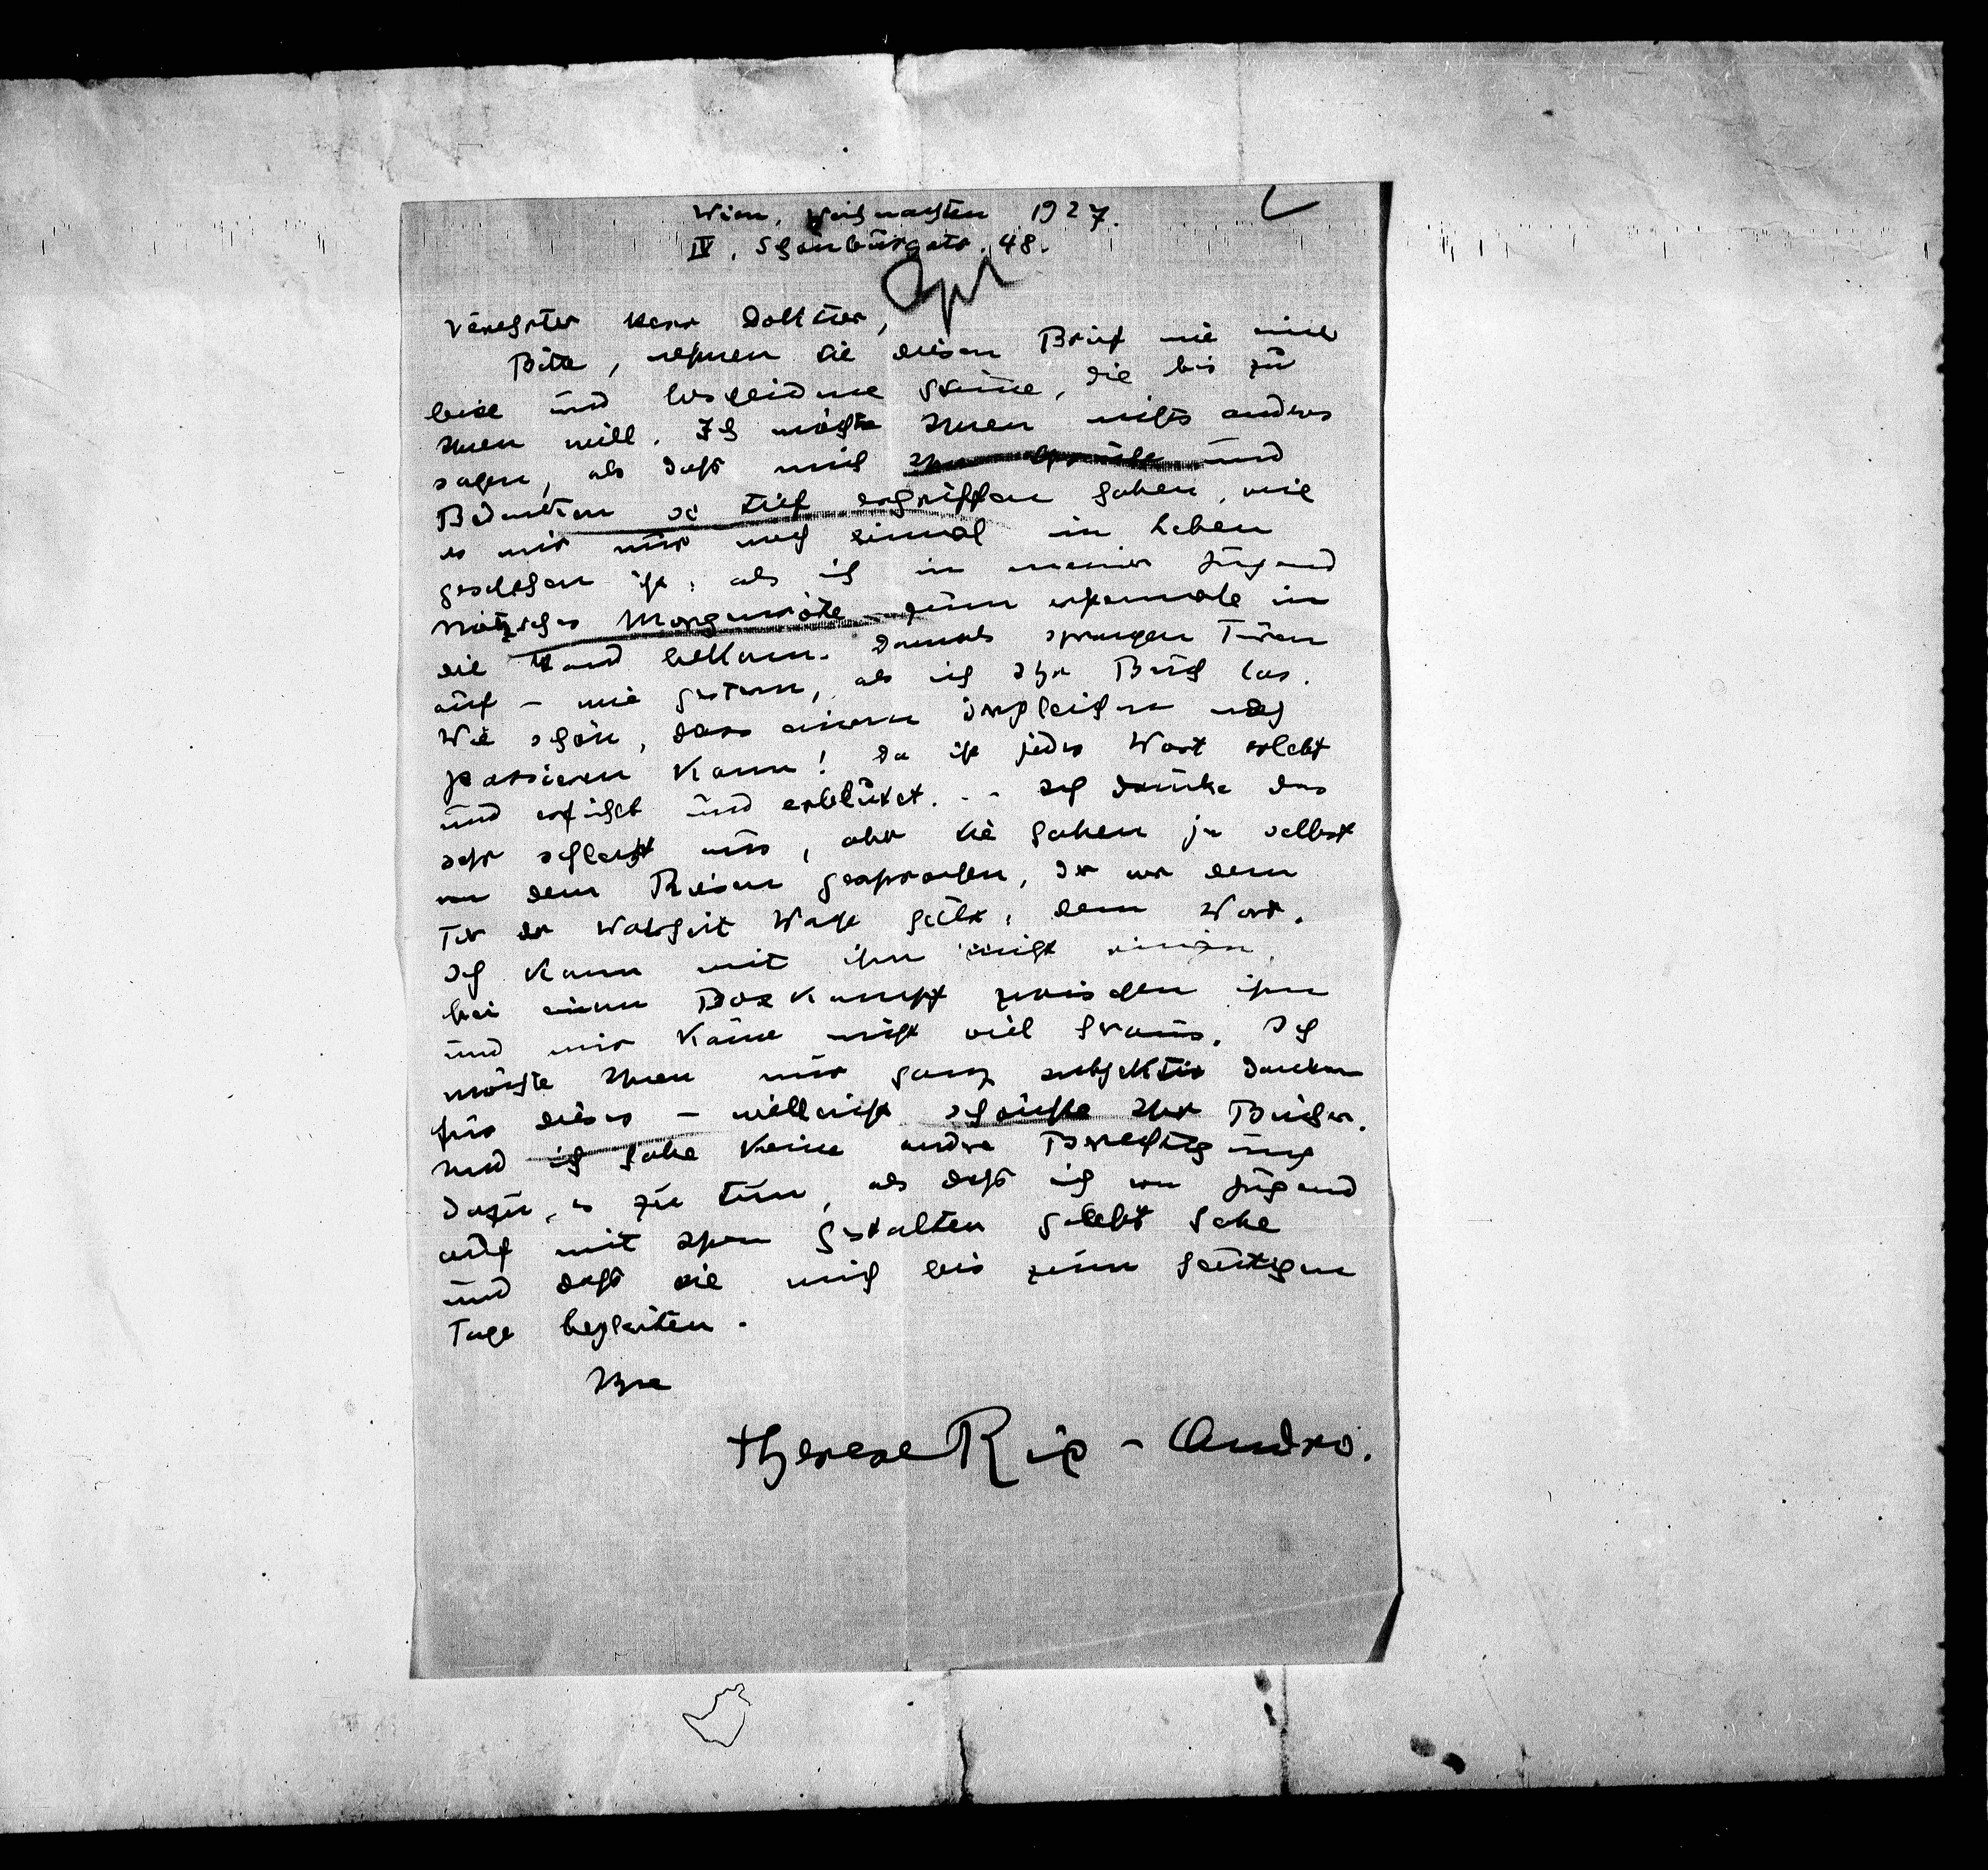 Wien, Weihnachten 1927.
IV, Schönburgstr. 48.
Verehrter Herr Doktor,
Bitte, nehmen Sie diesen Brief wie eine
leise und bescheidene Stimme, die bis zu
Ihnen will. Ich möchte Ihnen nichts andres
sagen, als dass mich Ihre Sprüche und
Bedenken so tief ergriffen haben, wie
es mir nur noch einmal im Leben
geschehen ist: als ich in meiner Jugend
Nietzsches Morgenröte zum erstenmale in
die Hand bekam. Damals sprangen Türen
auf – wie gestern, als ich Ihr Buch las.
Wie schön, dass einem dergleichen noch
passieren kann! Da ist jedes Wort erlebt
und erfühlt und erblutet... Ich drücke das
sehr schlecht aus, aber Sie haben ja selbst
von dem Riesen gesprochen, der vor dem
Tor der Wahrheit Wache hält: dem Wort.
Ich kann mit ihm nicht
bei einem Boxkampf zwischen ihm
und mir käme nicht viel heraus. Ich
möchte Ihnen nur ganz subjektiv danken
für dieses – vielleicht schönste Ihrer Bücher.
Und ich habe keine andre Berechtigung
dazu, es zu tun, als dass ich von Jugend
auf mit Ihren Gestalten gelebt habe
und dass sie mich bis zum heutigen
Tage begleiten.
Ihre
Therese Rie-Andro.